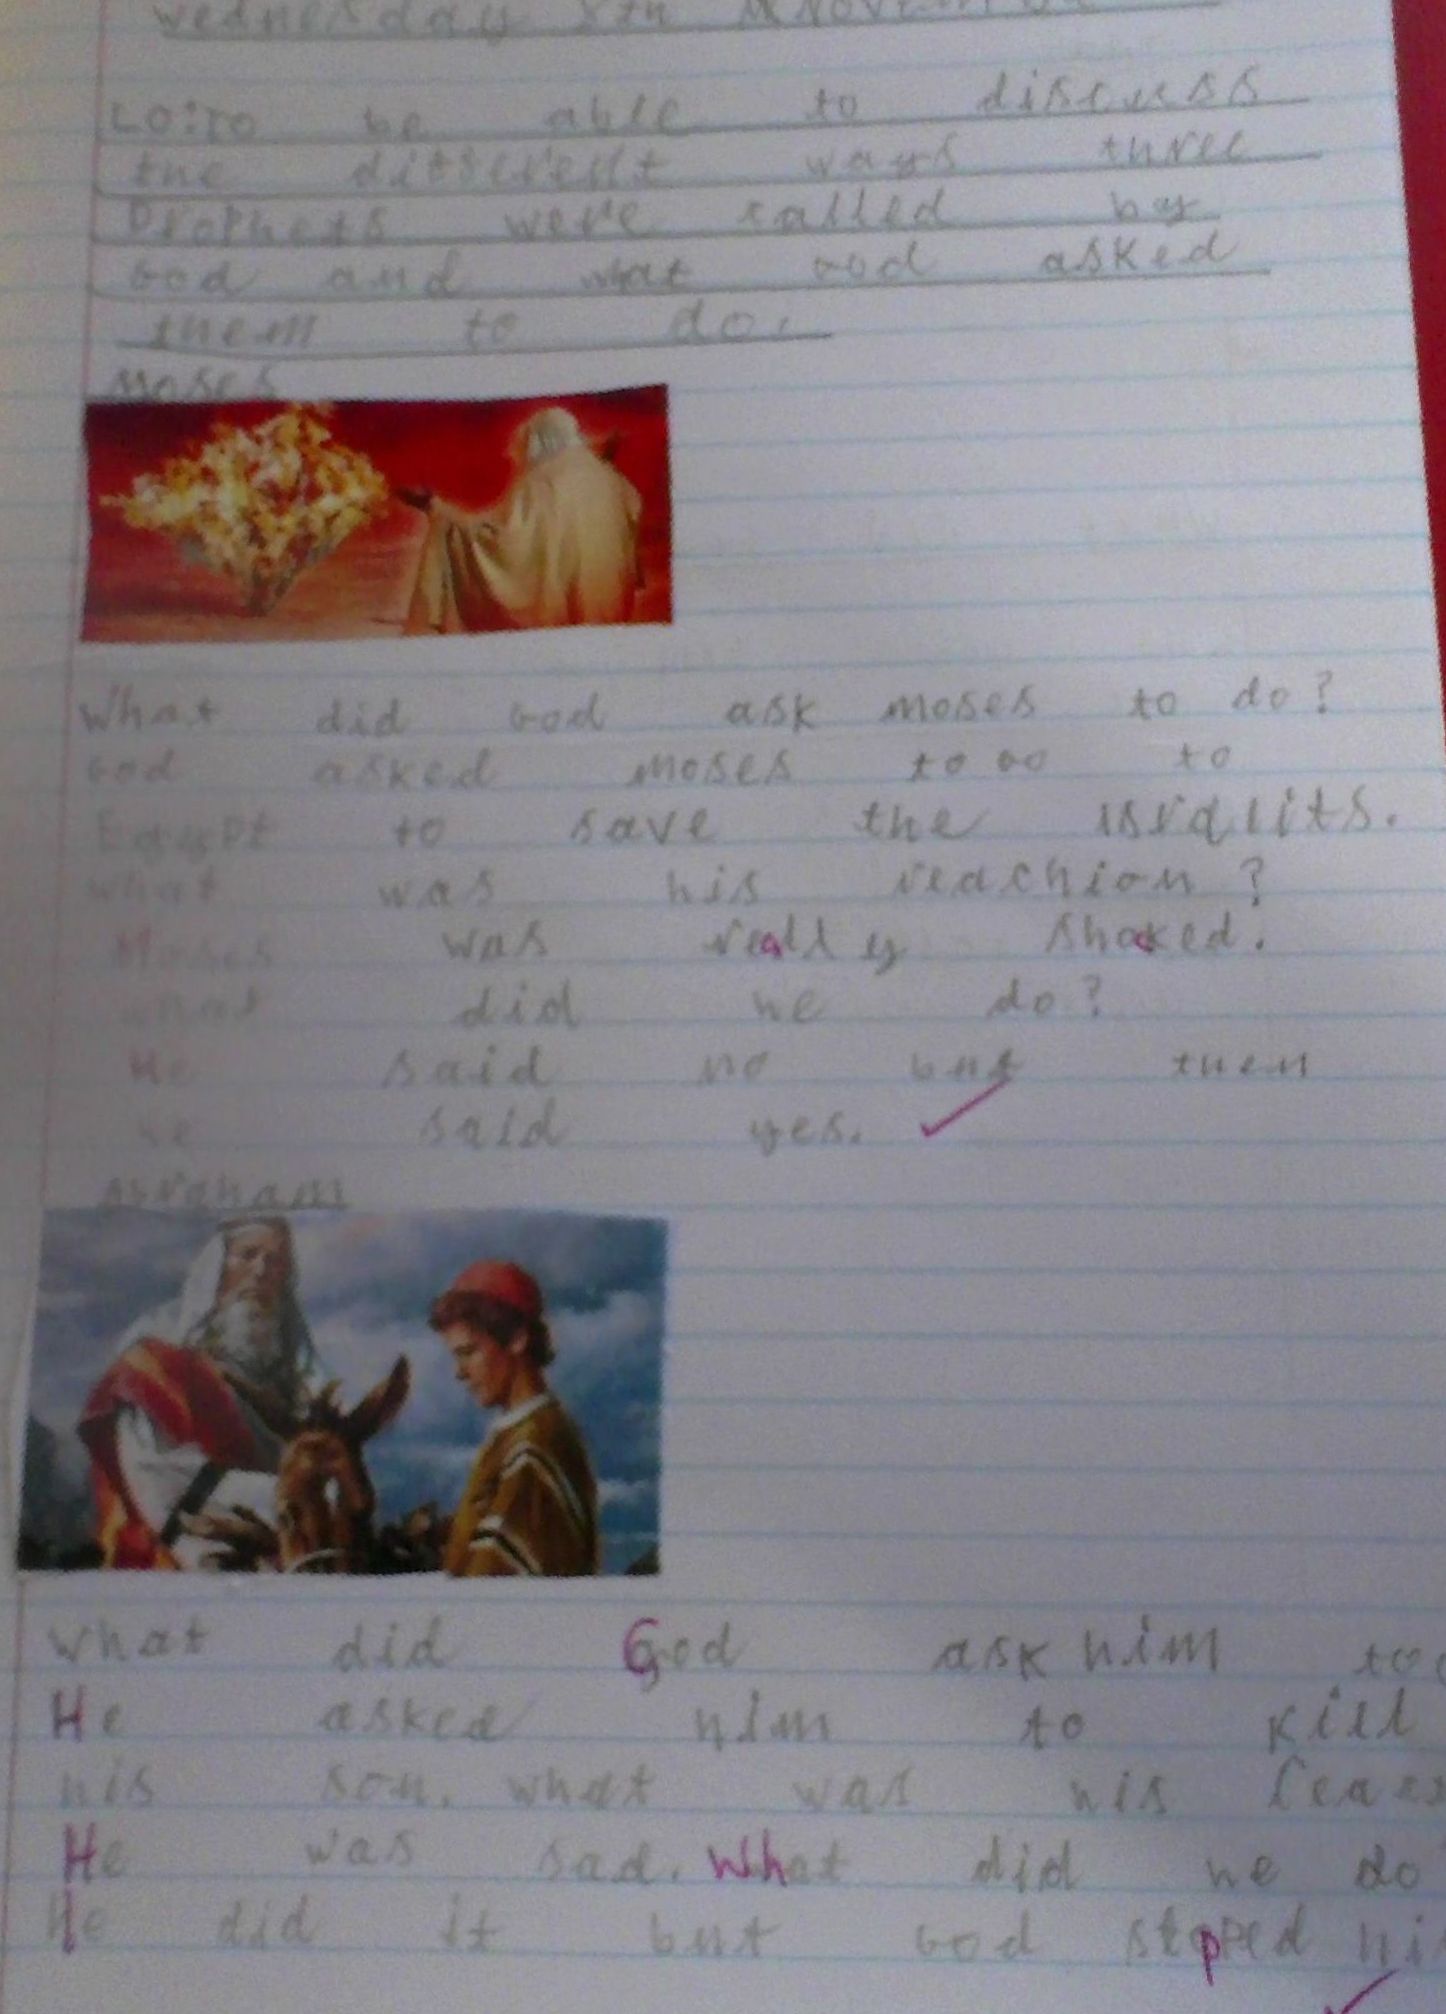 Wednesday 8th November
LO: To be able to discuss
the different ways three
Prophets were called by
God and what God asked
them to do.
Moses
What did God ask Moses to do?
God asked Moses to go to
Egypt to save the isralits.
what was his reachion?
Moses was really shaked.
what did he do?
He said no but then
he said yes.
Abraham
What did God ask him to
He asked him to kill
his son. what was his
He was sad. What did he do
He did it but God stopped